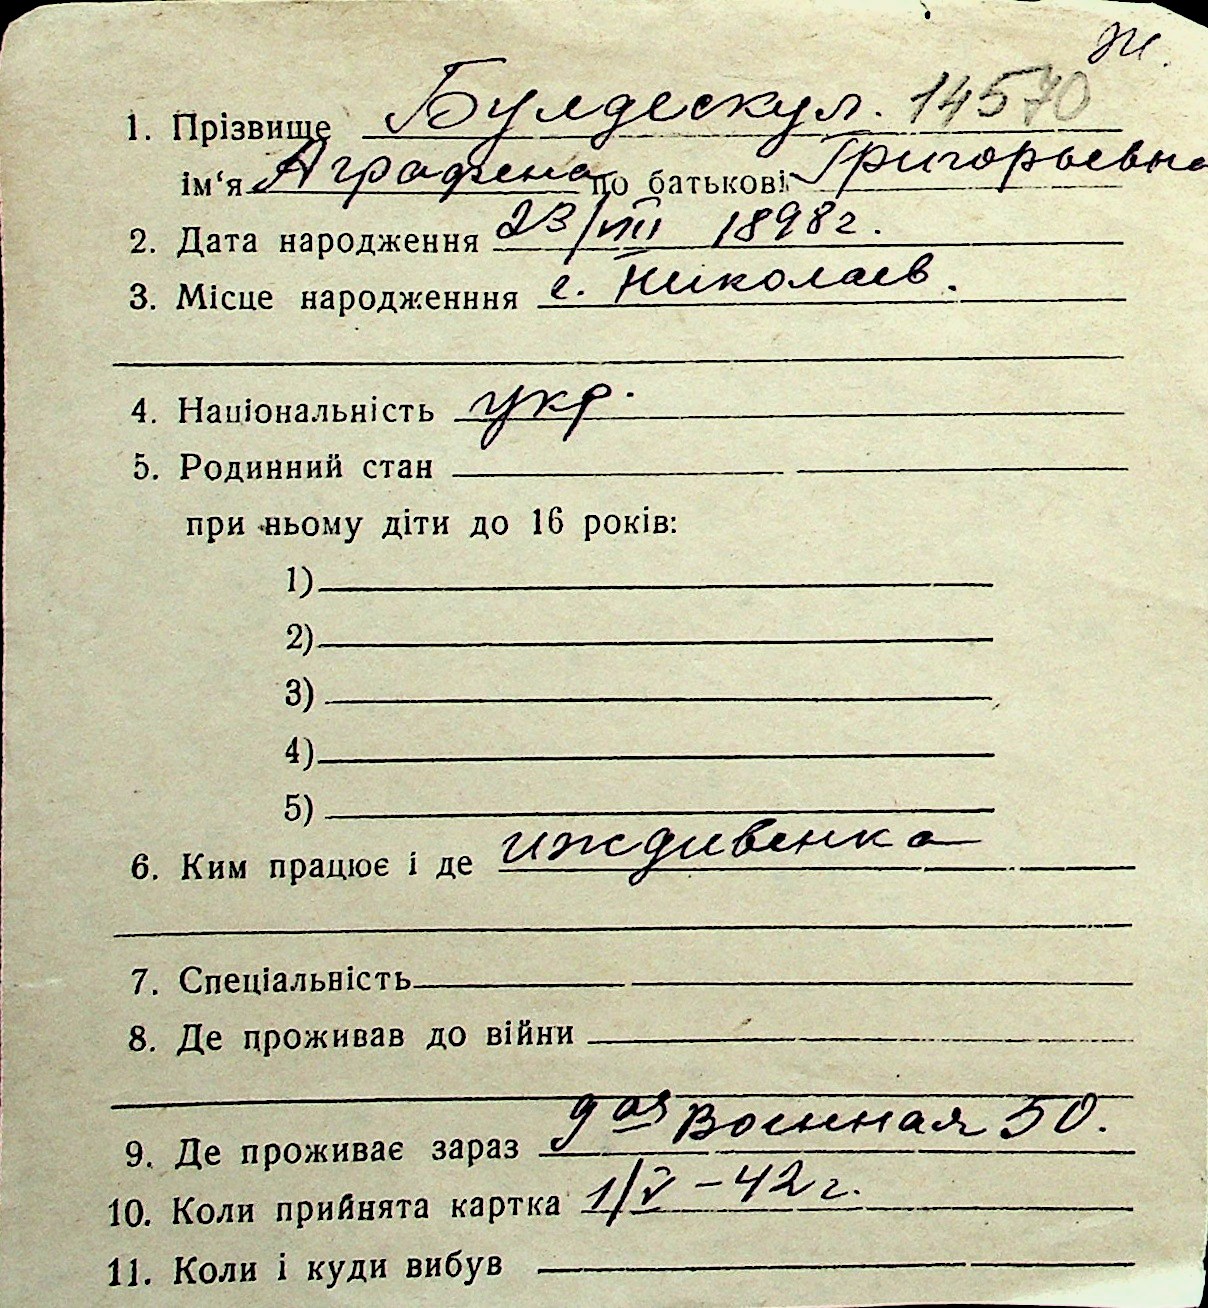 Ж.
1. Прізвище Булдескул. 14570
ім‘я Аграфена по батькові Григорьевна
2. Дата народження 23/VIII 1898г.
3. Місце народженння г. Николаев.
4. Національність укр.
5. Родинний стан
при ньому діти до 16 років:
1)
2)
3)
4)
5)
6. Ким працює і де иждивенка
7. Спеціальність
8. Де проживав до війни
9. Де проживає зараз 9ая Военная 50.
10. Коли прийнята картка 1/V – 42 г.
11. Коли і куди вибув